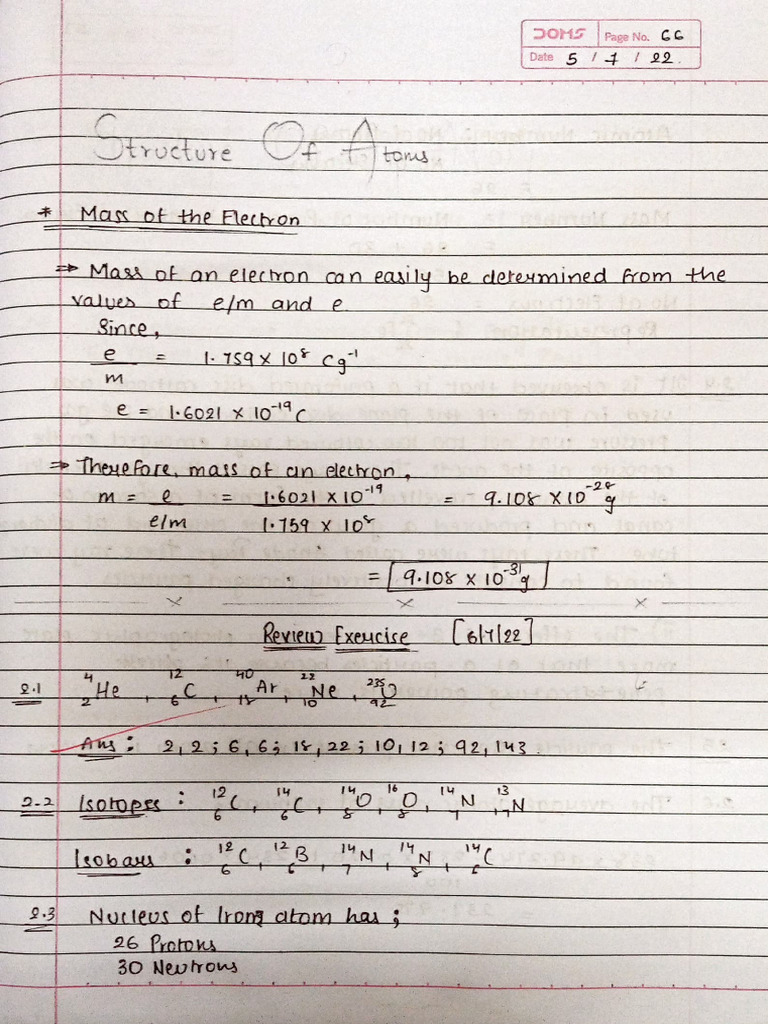 DOMS Page No. 66
Date 5 / 7 / 22.
Structure Of Atoms
* Mass of the Electron
⇒ Mass of an electron can easily be determined from the
values of e/m and e.
Since,
e/m = 1.759 × 10⁸ Cg⁻¹
e = 1.6021 × 10⁻¹⁹ C
⇒ Therefore, mass of an electron,
m = e / (e/m) = 1.6021 × 10⁻¹⁹ / 1.759 × 10⁸ = 9.108 × 10⁻²⁸ g
= 9.108 × 10⁻³¹ g
Review Exercise [6/7/22]
2.1 ⁴₂He, ¹²₆C, ⁴⁰₁₈Ar, ²²₁₀Ne, ²³⁵₉₂U
Ans: 2,2; 6,6; 18,22; 10,12; 92,143.
2.2 Isotopes : ¹²₆C, ¹⁴₆C, ¹⁴₈O, ¹⁶₈O, ¹⁴₇N, ¹³₇N
Isobars : ¹²₆C, ¹²₆B, ¹⁴₇N, ¹⁴₈N, ¹⁴₆C
2.3 Nucleus of Iron atom has;
26 Protons
30 Neutrons